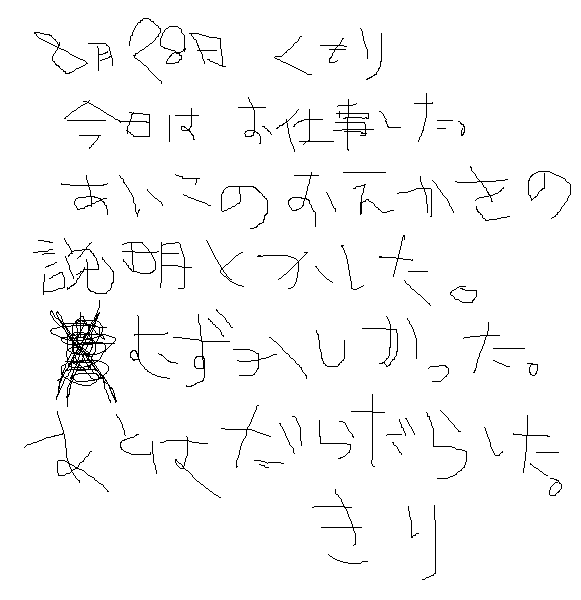 8月28日 くもり
今日は お仕事した。
おいこの おえかきの
説明とかいした。
むずかしかった。
あとはだらだらした。
きり